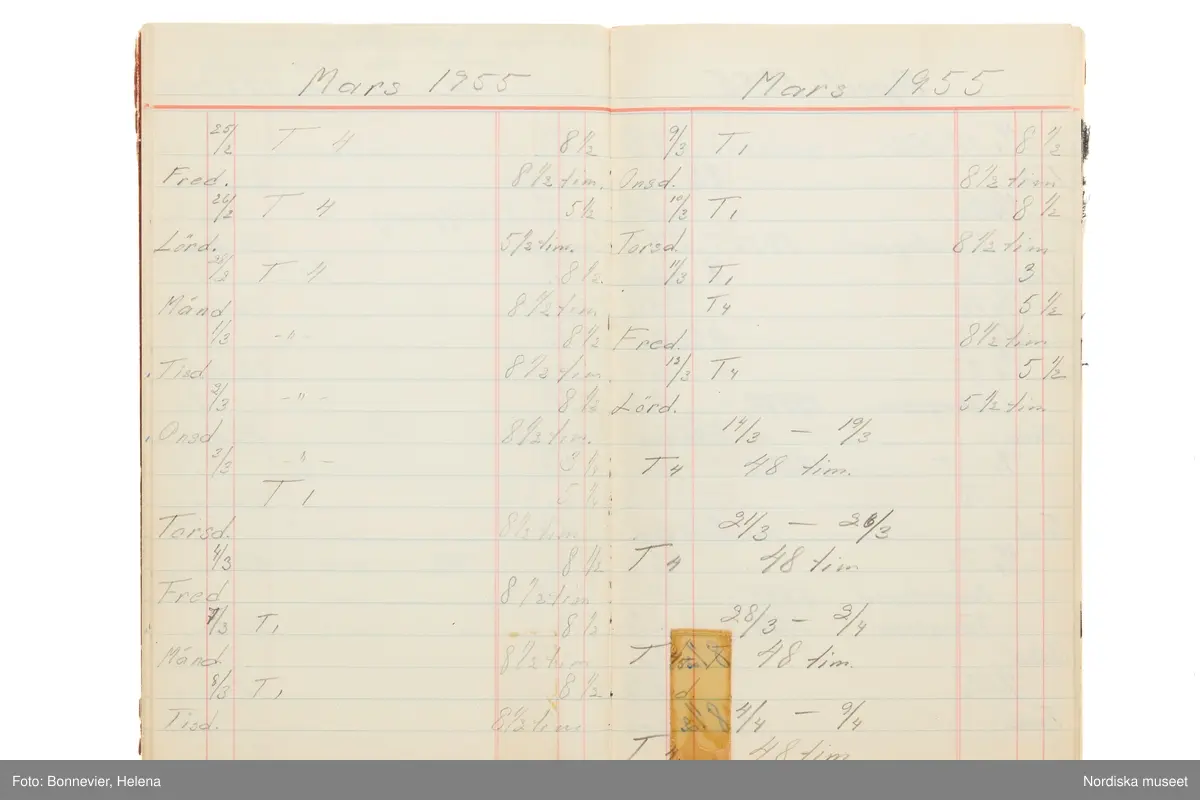 Mars 1955
25/2 T 4 8 1/2
Fred. 8 1/2 tim.
26/2 T 4 5 1/2
Lörd. 5 1/2 tim.
T 4 8 1/2
Månd 8 1/2 tim
1/3 -"- 8 1/2
Tisd 8 1/2 tim.
2/3 -"- 8 1/2
Onsd 8 1/2 tim.
3/3 -"- 3
T 1 5 1/2
Torsd. 8 1/2 tim
4/3 8 1/2
Fred 8 1/2 tim
7/3 T1 8 1/2
Månd. 8 1/2 tim
8/3 T1 8 1/2
Tisd. 8 1/2 tim
Mars 1955
9/3 T1 8 1/2
Onsd. 8 1/2 tim
10/3 T1 8 1/2
Torsd. 8 1/2 tim
11/3 T1 3
T4 5 1/2
Fred. 8 1/2 tim
12/3 T4 5 1/2
Lörd. 5 1/2 tim
14/3 — 19/3
T4 48 tim.
21/3 — 26/3
T 4 48 tim
28/3 — 2/4
T 4 48 tim.
4/4 — 9/4
T 4. 48 tim
Foto: Bonnevier, Helena
Nordiska museet